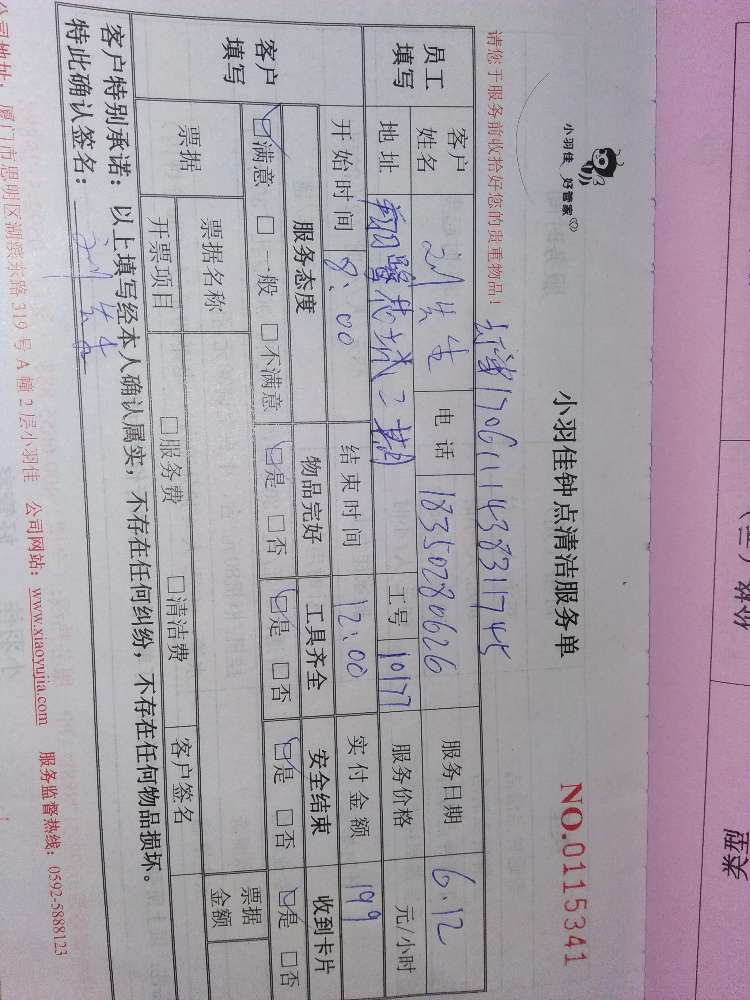 小羽佳 好管家
小羽佳钟点清洁服务单
NO.0115341
请您于服务前收拾好您的贵重物品！
1706111438311745
员工填写 客户姓名 刘先生 电话 18350280626 服务日期 6.12
地址 二期 工号 10177 服务价格 元/小时
开始时间 8:00 结束时间 12:00 实付金额 199
客户填写 服务态度 物品完好 工具齐全 安全结束 收到卡片
☑满意 □一般 □不满意 ☑是 □否 ☑是 □否 ☑是 □否 ☑是 □否
票据 票据名称 票据金额
开票项目 □服务费 □清洁费 客户签名
客户特别承诺：以上填写经本人确认属实，不存在任何纠纷，不存在任何物品损坏。
特此确认签名：
公司地址：厦门市思明区湖滨东路319号A幢2层小羽佳 公司网站：www.xiaoyujia.com 服务监督热线：0592-5888123